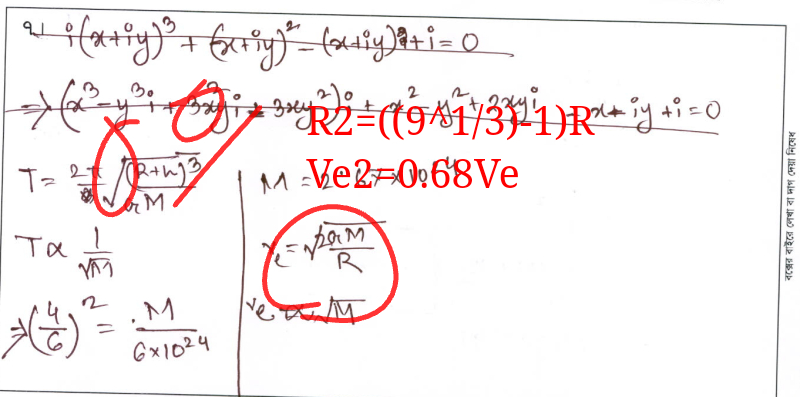 i(x+iy)³ + (x+iy)² - (x+iy) + i = 0
⇒ (x³ - y³i + 3x²yi - 3xy²)i + x² - y² + 2xyi - x - iy + i = 0
R2=((9^1/3)-1)R
Ve2=0.68Ve
T = √(R+h)³ / GM
M =
T ∝ 1/√M
vₑ = √2GM/R
vₑ ∝ √M
⇒ (4/6)² = M / 6×10²⁴
বক্সের বাইরে লেখা বা দাগ দেয়া নিষেধ